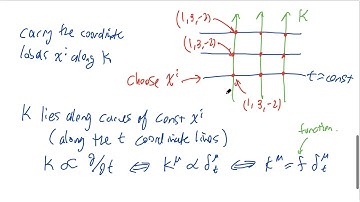 (1,3,-2)
K
carry the coordinate
(1,3,-2)
labels xⁱ along K
choose xⁱ
t=const
(1,3,-2)
K lies along curves of const xⁱ
(along the t coordinate lines)
function.
K ∝ ∂/∂t ⟺ K^μ ∝ δ^μ_t ⟺ K^μ = f δ^μ_t